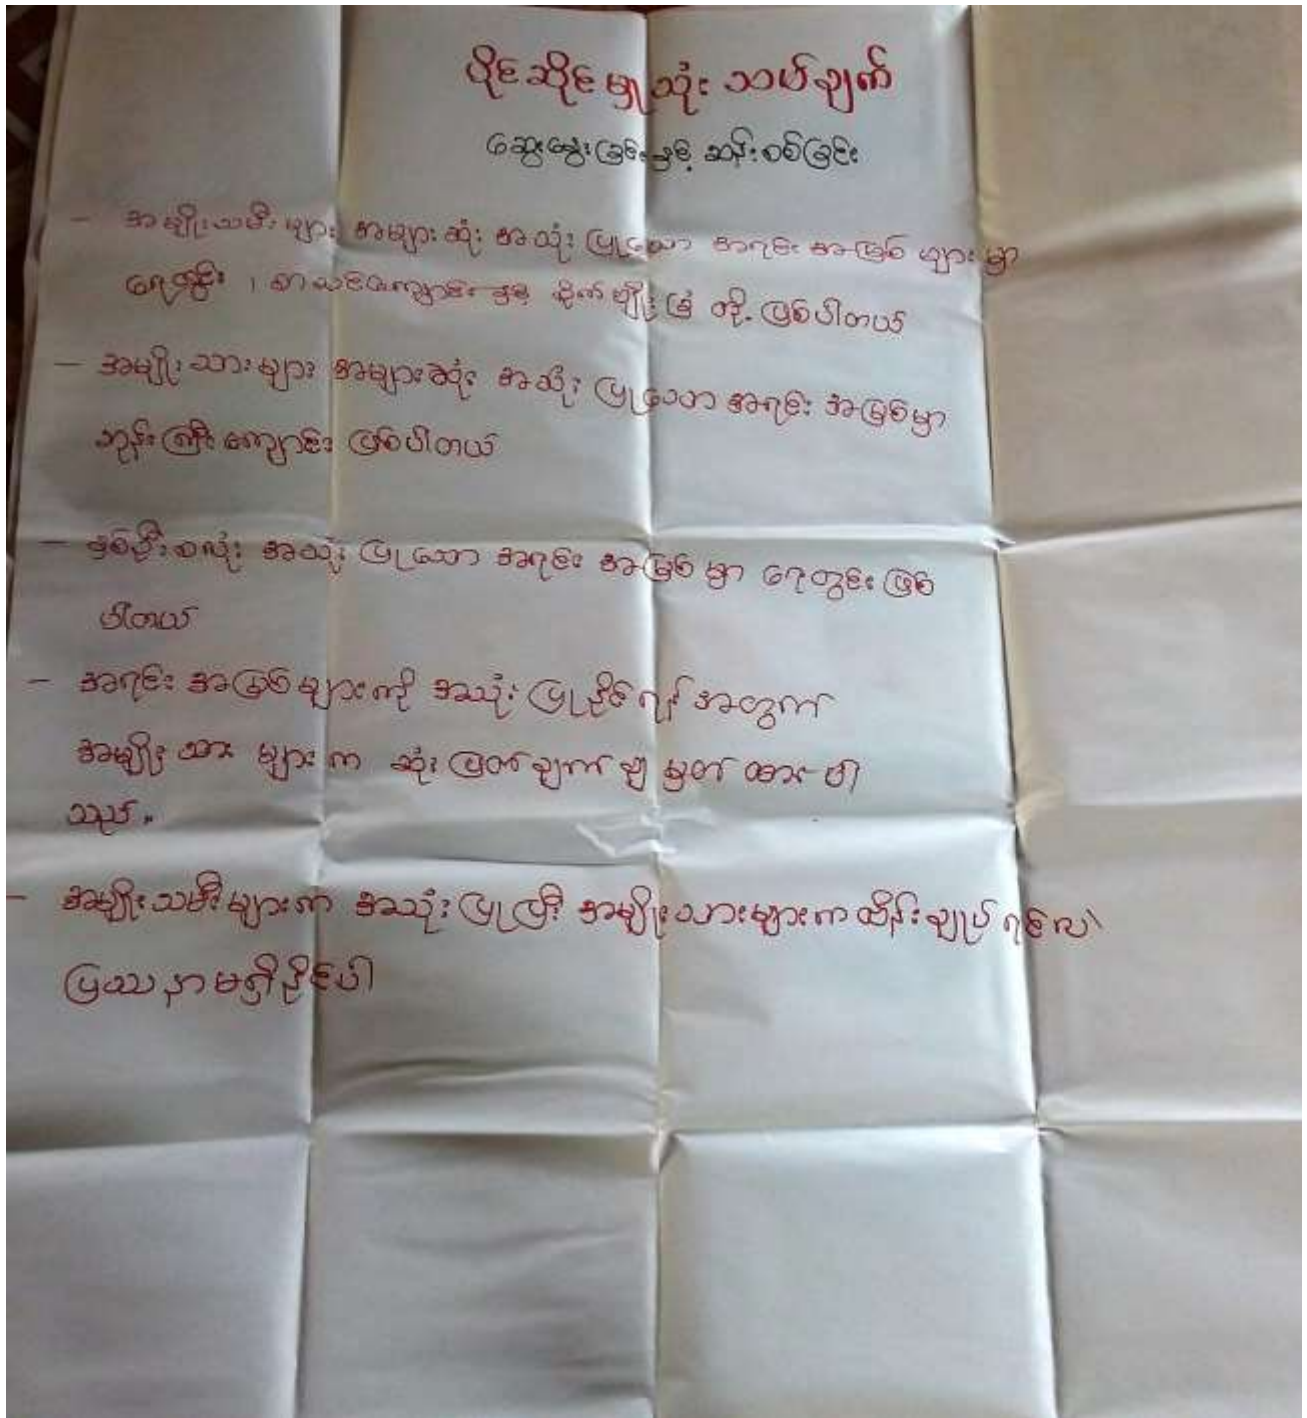 ပိုင်ဆိုင်မှုသုံးသပ်ချက်
ဆွေးနွေးခြင်းနှင့် ဆန်းစစ်ခြင်း
- အမျိုးသမီးများ အများဆုံး အသုံးပြုသော အရင်းအမြစ်များမှာ
ရေတွင်း ၊ စာသင်ကျောင်းနှင့် စိုက်ပျိုးခြံ တို့ ဖြစ်ပါတယ်
- အမျိုးသားများ အများဆုံး အသုံးပြုသော အရင်းအမြစ်မှာ
ဘုန်းကြီးကျောင်း ဖြစ်ပါတယ်
- နှစ်ဦးစလုံး အသုံးပြုသော အရင်းအမြစ်မှာ ရေတွင်းဖြစ်
ပါတယ်
- အရင်းအမြစ်များကို အသုံးပြုနိုင်ရန် အတွက်
အမျိုးသားများက ဆုံးဖြတ်ချက်ချ မှတ်ထားပါ
သည်။
- အမျိုးသမီးများက အသုံးပြုပြီး အမျိုးသားများကထိန်းချုပ်ရင်လဲ
ပြဿနာမရှိနိုင်ပါ